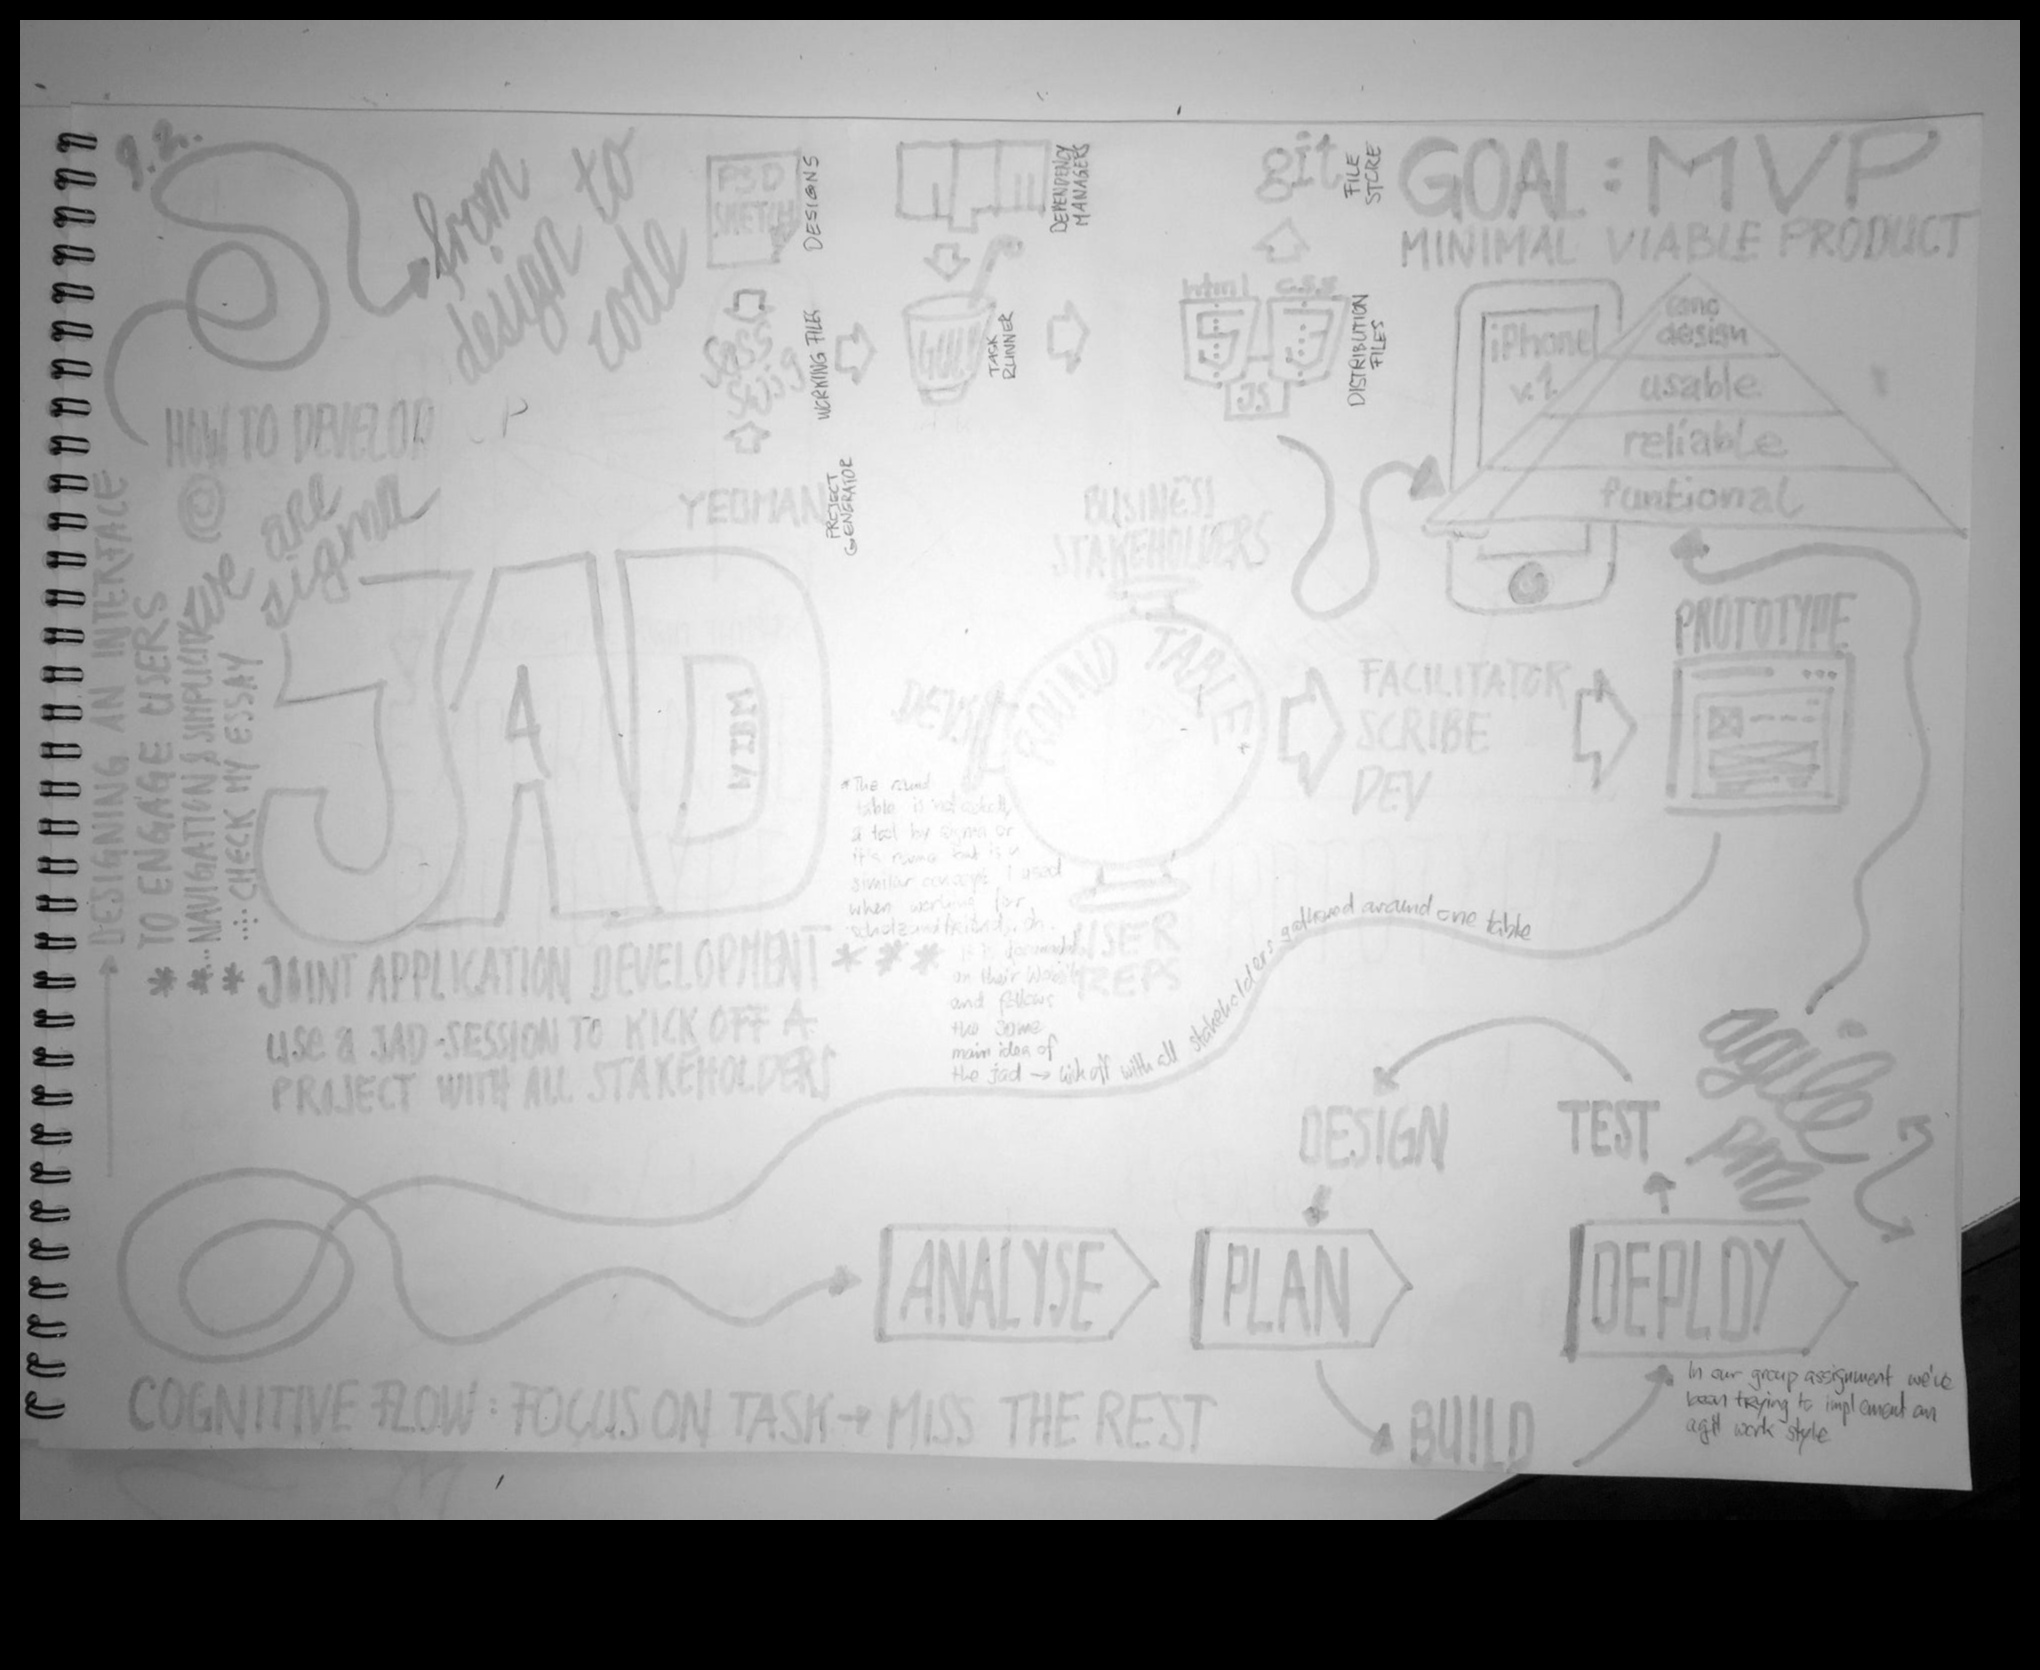 9.2.
from
design to
code
HOW TO DEVELOP
@
we are
sigma
PSD
SKETCH
DESIGNS
WORKING FILES
YEOMAN
PROJECT
GENERATOR
DEPENDENCY
MANAGERS
GULP
TASK
RUNNER
git
FILE
STORE
html
css
5
3
JS
DISTRIBUTION
FILES
GOAL: MVP
MINIMAL VIABLE PRODUCT
iPhone
v.1
design
usable
reliable
funtional
DESIGNING AN INTERFACE
TO ENGAGE USERS
...NAVIGATION & SIMPLICITY
CHECK MY ESSAY
JAD
BY IBM
*** JOINT APPLICATION DEVELOPMENT ***
USE a JAD-SESSION TO KICK OFF A
PROJECT WITH ALL STAKEHOLDERS
BUSINESS
STAKEHOLDERS
DEVS
ROUND TABLE*
USER
REPS
FACILITATOR
SCRIBE
DEV
PROTOTYPE
* The round
table is not
a tool by sigma or
it's name but is a
similar concept I used
when working for
on their
and follows
the same
main idea of
the jad → kick off with all stakeholders gathered around one table
agile
pm
DESIGN
TEST
ANALYSE
PLAN
DEPLOY
BUILD
In our group assignment we've
been trying to implement an
agil work style
COGNITIVE FLOW: FOCUS ON TASK → MISS THE REST